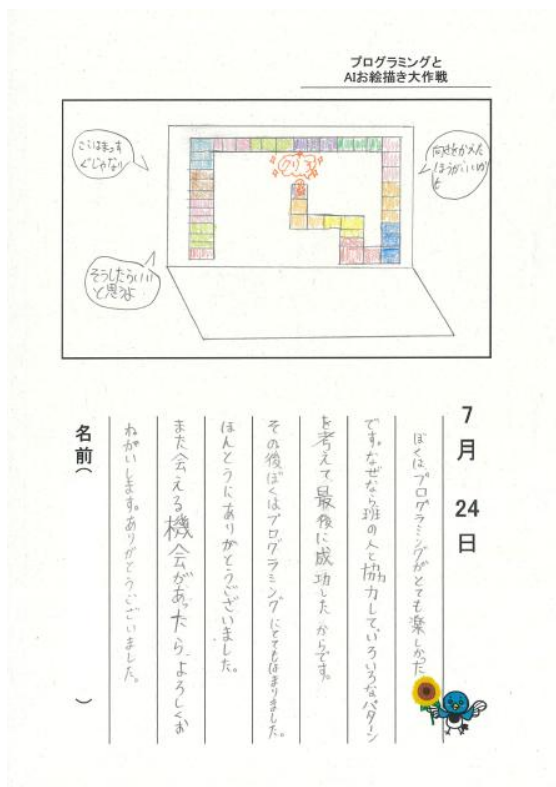 プログラミングと
AIお絵描き大作戦
ここはまっす
ぐじゃない
クリア
向きをかえた
ほうがいいか
も
そうしたらいい
と思うよ
7月 24日
ぼくはプログラミングがとても楽しかった
です。なぜなら班の人と協力して、いろいろなパターン
を考えて、最後に成功したからです。
その後ぼくはプログラミングにとてもはまりました。
ほんとうにありがとうございました。
また会える機会があったら、よろしくお
ねがいします。ありがとうございました。
名前( )